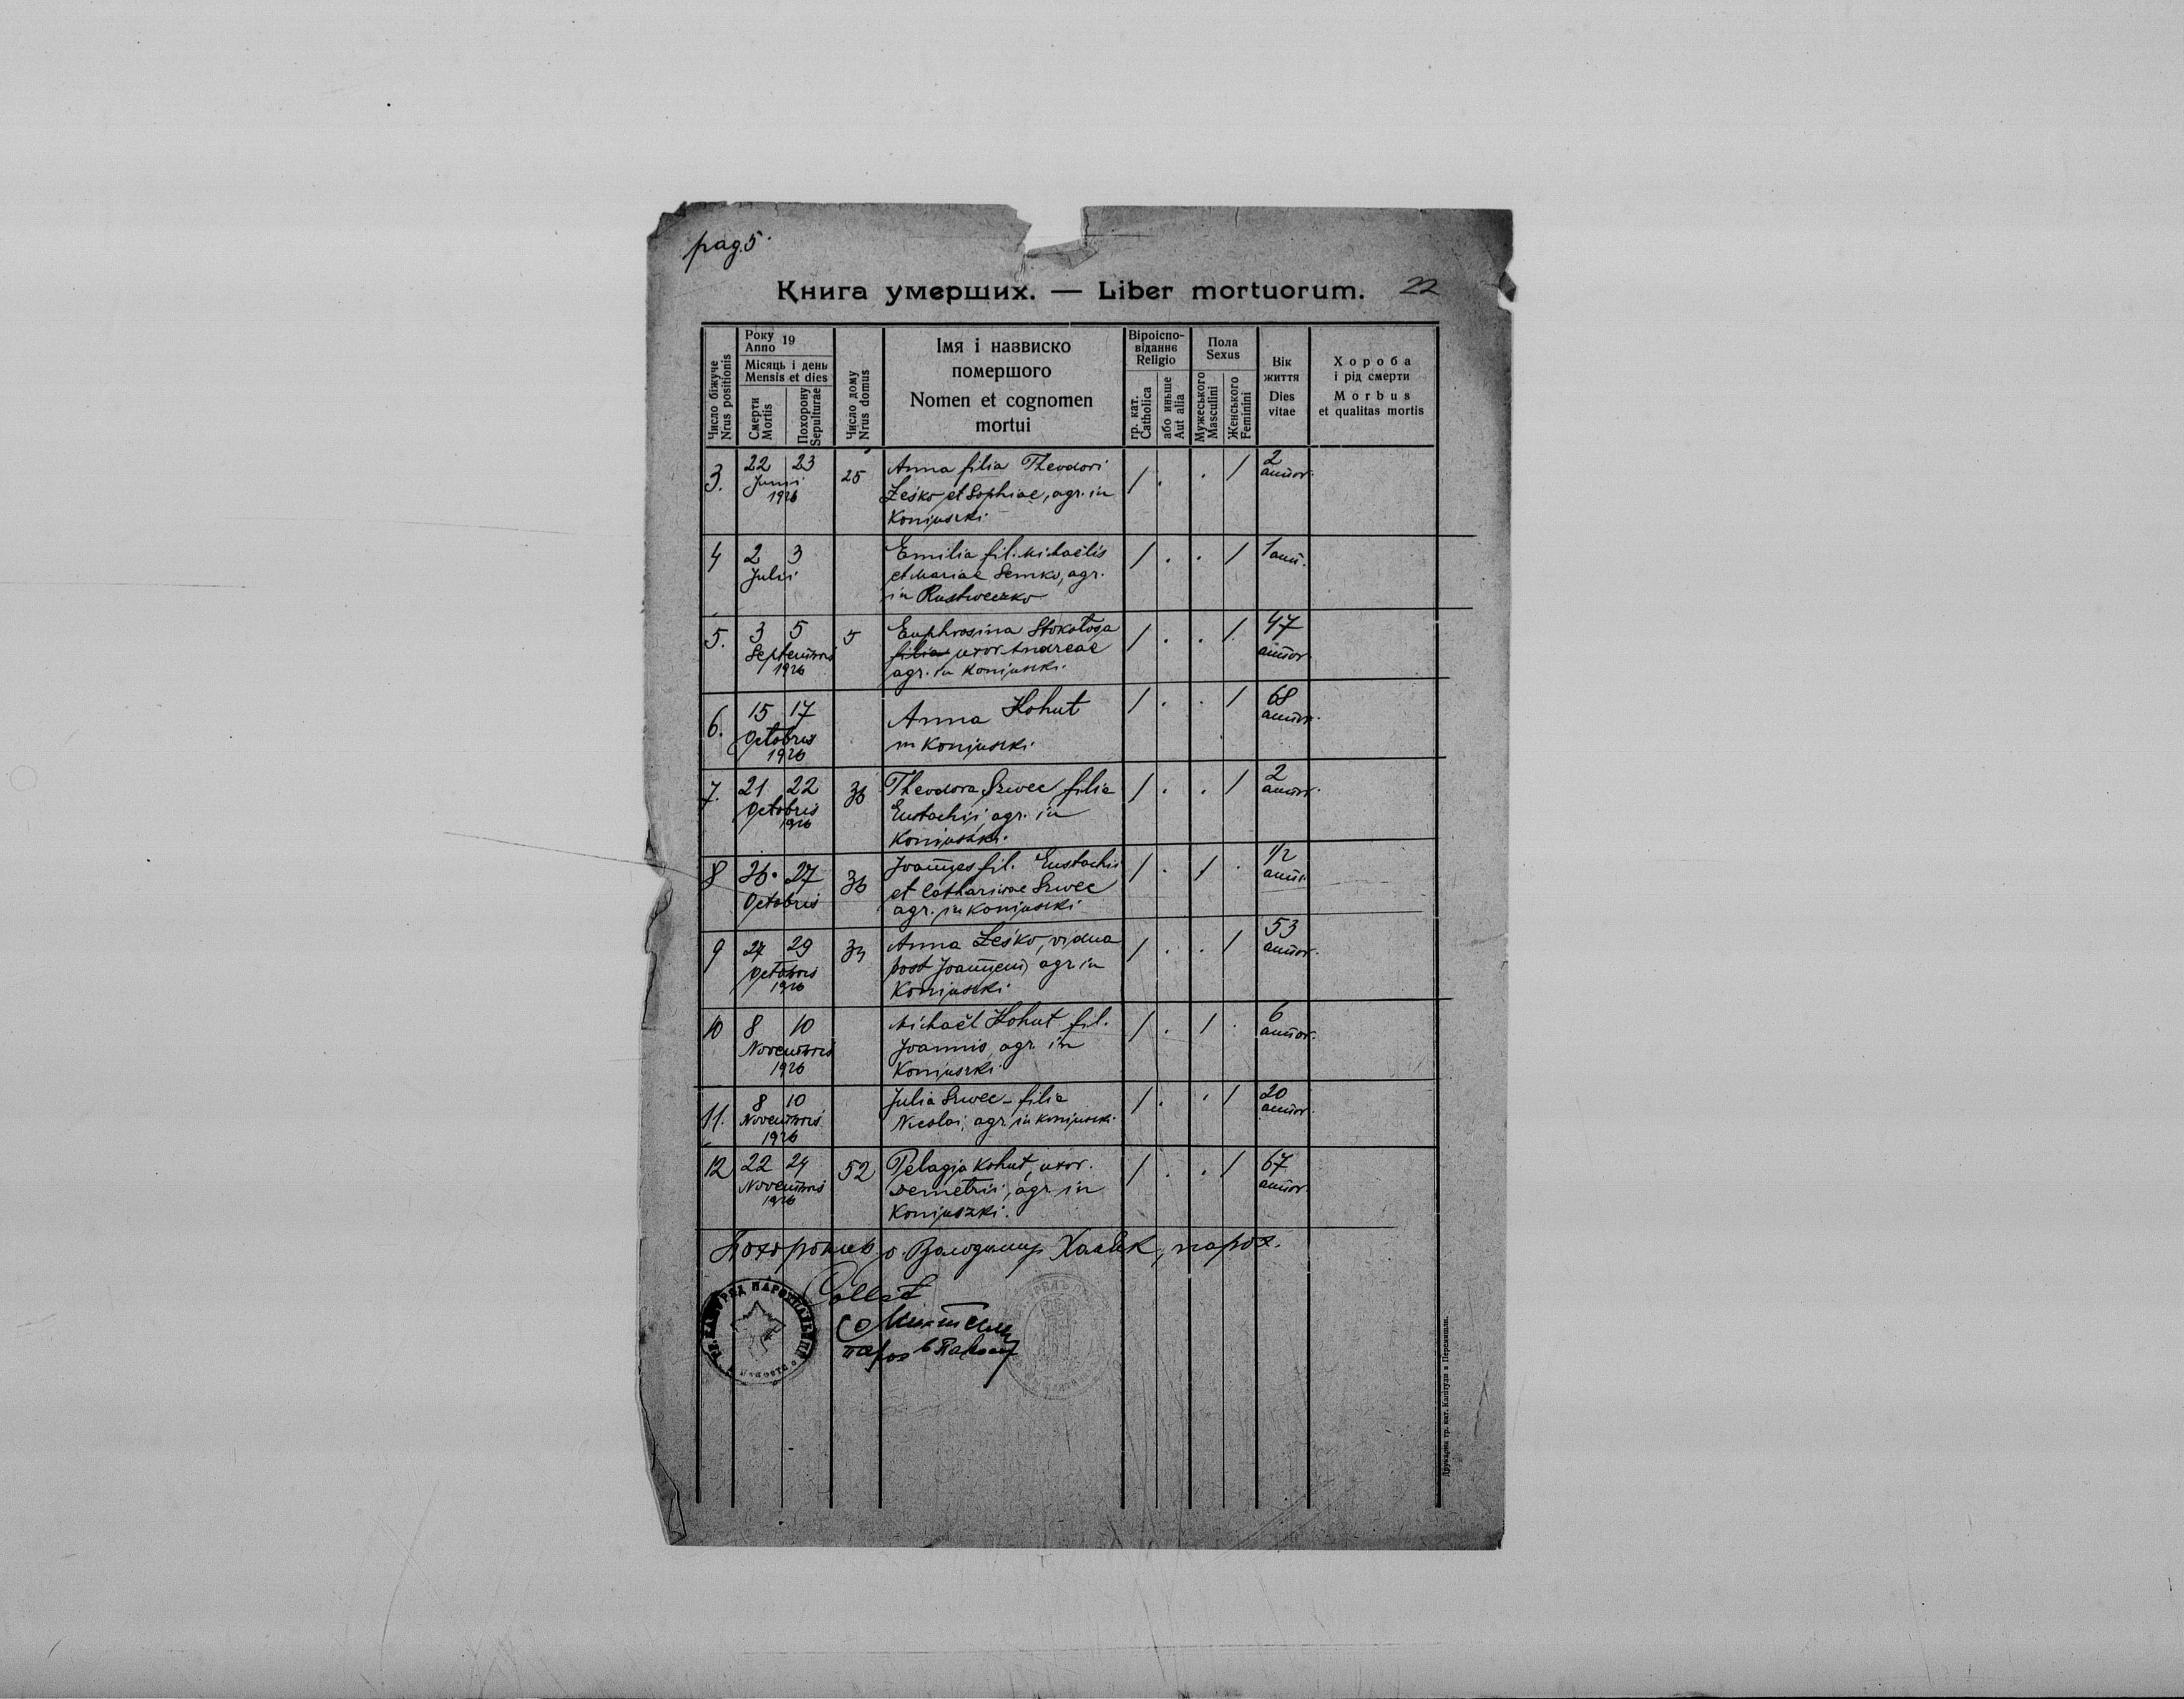 pag. 5.
Книга умерших. — Liber mortuorum. 22
Число біжуче
Nrus positionis
Року
Anno 19
Місяць і день
Mensis et dies
Смерти
Mortis
Похорону
Sepulturae
Число дому
Nrus domus
Імя і назвиско
помершого
Nomen et cognomen
mortui
Віроіспо-
віданнє
Religio
гр. кат.
Catholica
або иньше
Aut alia
Пола
Sexus
Мужеського
Masculini
Женського
Feminini
Вік
життя
Dies
vitae
Хороба
і рід смерти
Morbus
et qualitas mortis
3. 22 23 25 Anna filia Theodori / . . / 2
Junii Leśko et Sophiae, agr. in annor.
1926 Konjuszki
4 2 3 Emilia fil. Michaëlis / . . / 1 ann.
Julii et Mariae Semko, agr.
in Rustweczko
5. 3 5 5 Euphrosina Stokołosa / . . / 47
Septembris filia uxor Andreae annor.
1926 agr. in Konjuszki.
6. 15 17 Anna Hohut / . . / 68
Octobris in Konjuszki. annor.
1926
7. 21 22 36 Theodora Szwec filia / . . / 2
Octobris Eustachii, agr. in annor.
1926 Konjuszki.
8 26. 27 36 Joannes fil. Eustachii / . / . 1/2
Octobris et Catharinae Szwec anni.
agr. in Konjuszki
9 27 29 Anna Leśko, vidua / . . / 53
Octobris post Joannem, agr in annor.
1926 Konjuszki
10 8 10 Michaël Hohut fil. / . / . 6
Novembris Joannis, agr. in annor.
1926 Konjuszki.
11. 8 10 Julia Szwec - filia / . . / 20
Novembris Nicolai, agr. in Konjuszki. annor.
1926
12 22 24 52 Pelagja Kohut, uxor. / . . / 67
Novembris Demetrii, agr in annor.
1926 Konjuszki.
Похоронив о. Володимир, парох.
парох в
Друкарня гр. кат. Капітули в Перемишли.